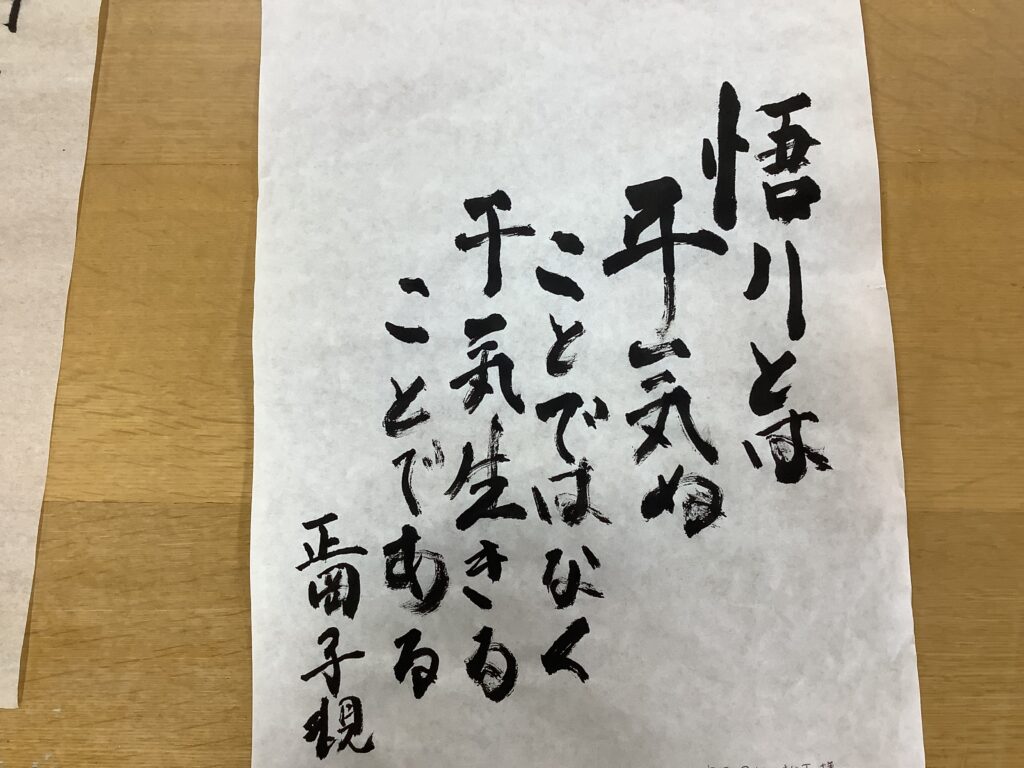 悟りとは
平気ぬ
ことではなく
平気生きる
ことである
正岡子規